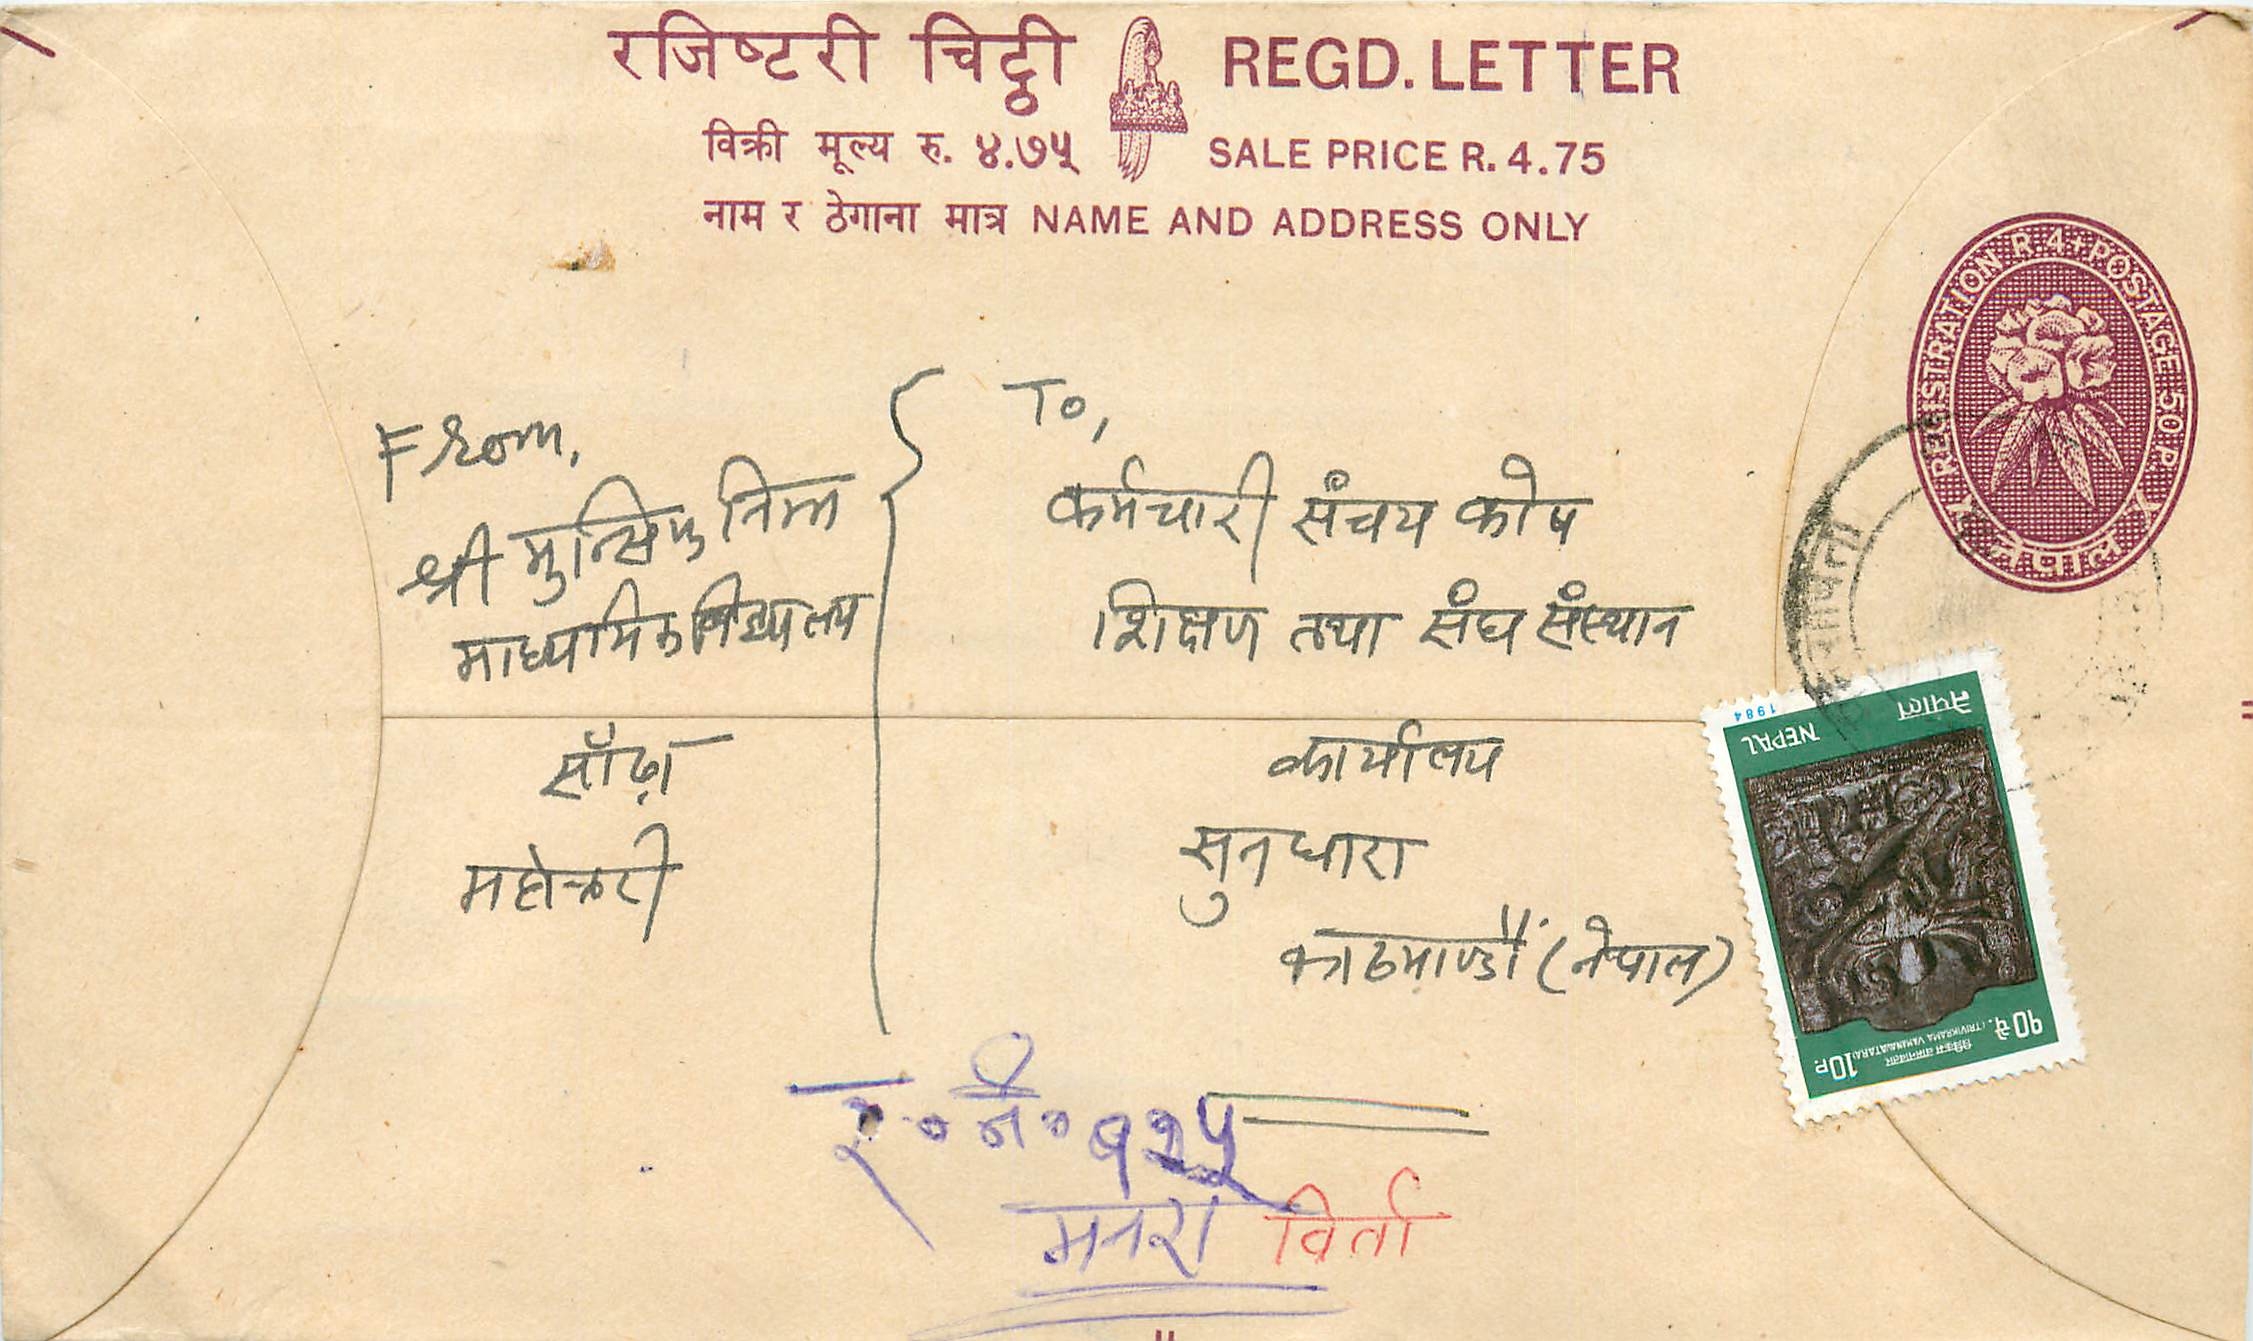 रजिष्टरी चिट्ठी REGD. LETTER
विक्री मूल्य रु. ४.७५ SALE PRICE R. 4.75
नाम र ठेगाना मात्र NAME AND ADDRESS ONLY
REGISTRATION R. 4 + POSTAGE 50 P.
नेपाल
From,
श्री मुन्सिफ निम्न
माध्यमिक विद्यालय
साँढा
महोत्तरी
To,
कर्मचारी संचय कोष
शिक्षण तथा संघ संस्थान
कार्यालय
सुनधारा
काठमाण्डौं (नेपाल)
1984
नेपाल
NEPAL
१० पै. 10 P.
त्रिविक्रम वामनावतार
(TRIVIKRAMA VAMANAVATARA)
र॰ नं॰ १२५
मनरा विर्ता